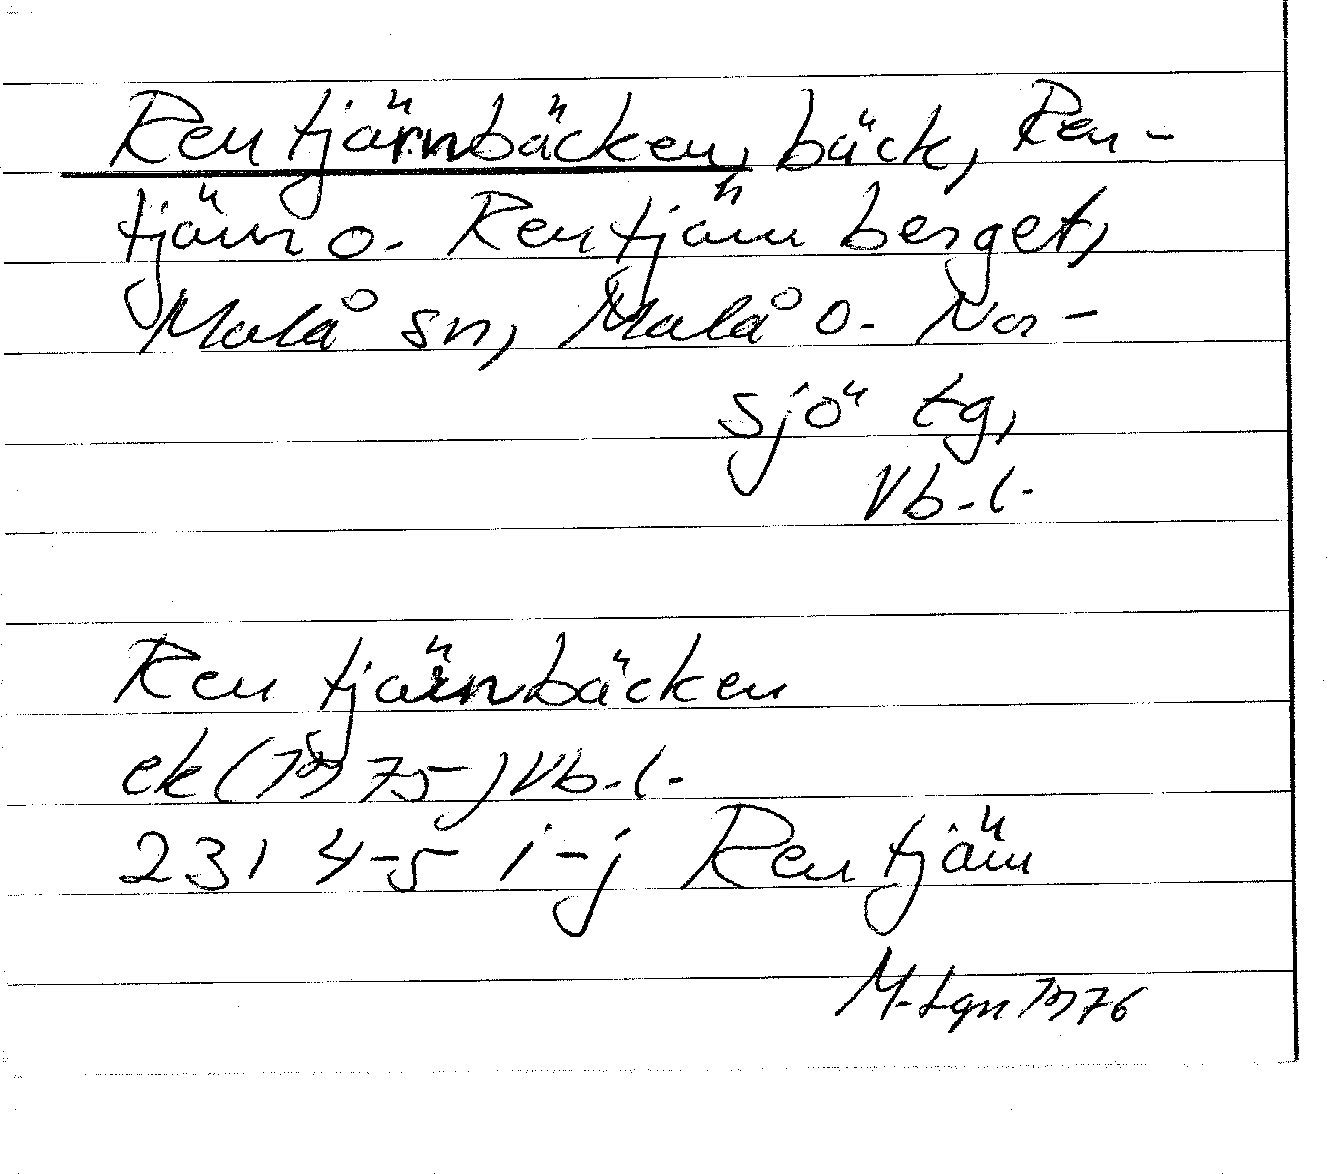 Rentjärnbäcken, bäck, Ren-
tjärn o. Rentjärnberget,
Malå sn, Malå o. Nor-
sjö tg,
Vb.l.
Rentjärnbäcken
ek (1975) Vb.l.
231 4-5 i-j Rentjärn
M. Lgn 1976